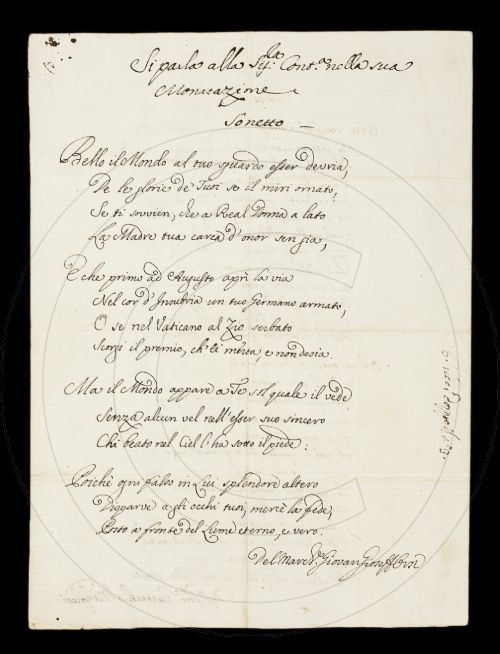 Si parla alla Sig.ra Cont.a nella sua
Monacazione
Sonetto
Bello il Mondo al tuo guardo esser devria,
De le glorie de' Tuoi se il miri ornato,
Se ti sovvien, che a Real Donna a lato
La Madre tua carca d'onor sen gia,
E che primo ad Augusto aprì la via
Nel cor d'Insubria un tuo Germano armato,
O se nel Vaticano al Zio serbato
Scorgi il premio, ch'Ei merta, e non desia.
Ma il Mondo appare a Te sol quale il vede
Senza alcun vel nell'esser suo sincero
Chi beato nel Ciel l'ha sotto il piede:
Poichè ogni falso in Lui splendore altero
Disparve a gli occhi tuoi, mercè la fede,
Posto a fronte del Lume eterno, e vero.
Del March.e Giovan Gioseffo Orsi